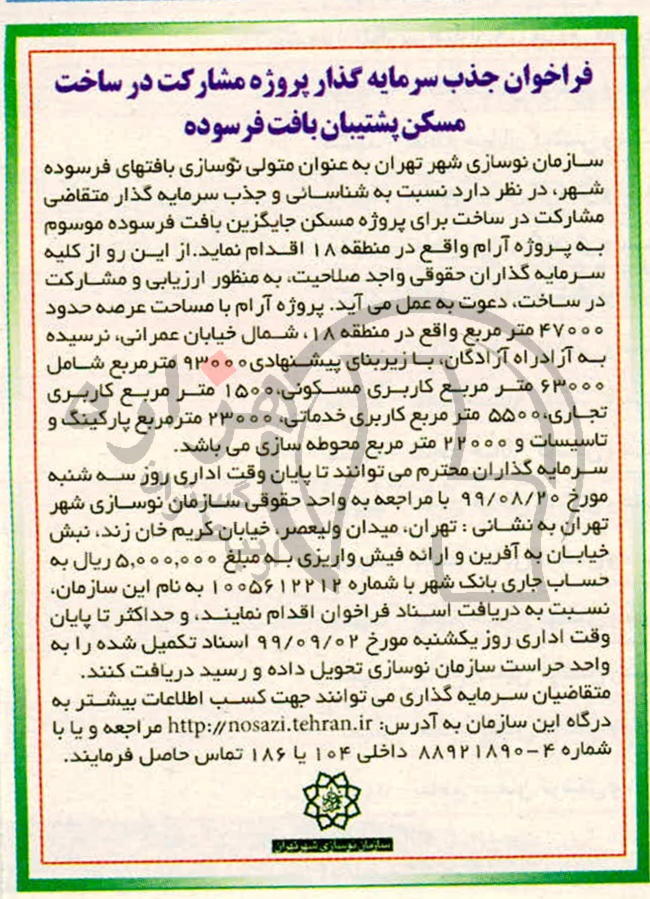 فراخوان جذب سرمایه گذار پروژه مشارکت در ساخت
مسکن پشتیبان بافت فرسوده
سازمان نوسازی شهر تهران به عنوان متولی نوسازی بافتهای فرسوده
شهر، در نظر دارد نسبت به شناسائی و جذب سرمایه گذار متقاضی
مشارکت در ساخت برای پروژه مسکن جایگزین بافت فرسوده موسوم
به پروژه آرام واقع در منطقه ۱۸ اقدام نماید. از این رو از کلیه
سرمایه گذاران حقوقی واجد صلاحیت، به منظور ارزیابی و مشارکت
در ساخت، دعوت به عمل می آید. پروژه آرام با مساحت عرصه حدود
۴۷۰۰۰ متر مربع واقع در منطقه ۱۸، شمال خیابان عمرانی، نرسیده
به آزادراه آزادگان، با زیربنای پیشنهادی ۹۳۰۰۰ مترمربع شامل
۶۳۰۰۰ متر مربع کاربری مسکونی، ۱۵۰۰ متر مربع کاربری
تجاری، ۵۵۰۰ متر مربع کاربری خدماتی، ۲۳۰۰۰ مترمربع پارکینگ و
تاسیسات و ۲۲۰۰۰ متر مربع محوطه سازی می باشد.
سرمایه گذاران محترم می توانند تا پایان وقت اداری روز سه شنبه
مورخ ۹۹/۰۸/۲۰ با مراجعه به واحد حقوقی سازمان نوسازی شهر
تهران به نشانی : تهران، میدان ولیعصر، خیابان کریم خان زند، نبش
خیابان به آفرین و ارائه فیش واریزی به مبلغ ۵,۰۰۰,۰۰۰ ریال به
حساب جاری بانک شهر با شماره ۱۰۰۵۶۱۲۲۱۲ به نام این سازمان،
نسبت به دریافت اسناد فراخوان اقدام نمایند، و حداکثر تا پایان
وقت اداری روز یکشنبه مورخ ۹۹/۰۹/۰۲ اسناد تکمیل شده را به
واحد حراست سازمان نوسازی تحویل داده و رسید دریافت کنند.
متقاضیان سرمایه گذاری می توانند جهت کسب اطلاعات بیشتر به
درگاه این سازمان به آدرس: http://nosazi.tehran.ir مراجعه و یا با
شماره ۴-۸۸۹۲۱۸۹۰ داخلی ۱۰۴ یا ۱۸۶ تماس حاصل فرمایند.
سازمان نوسازی شهر تهران